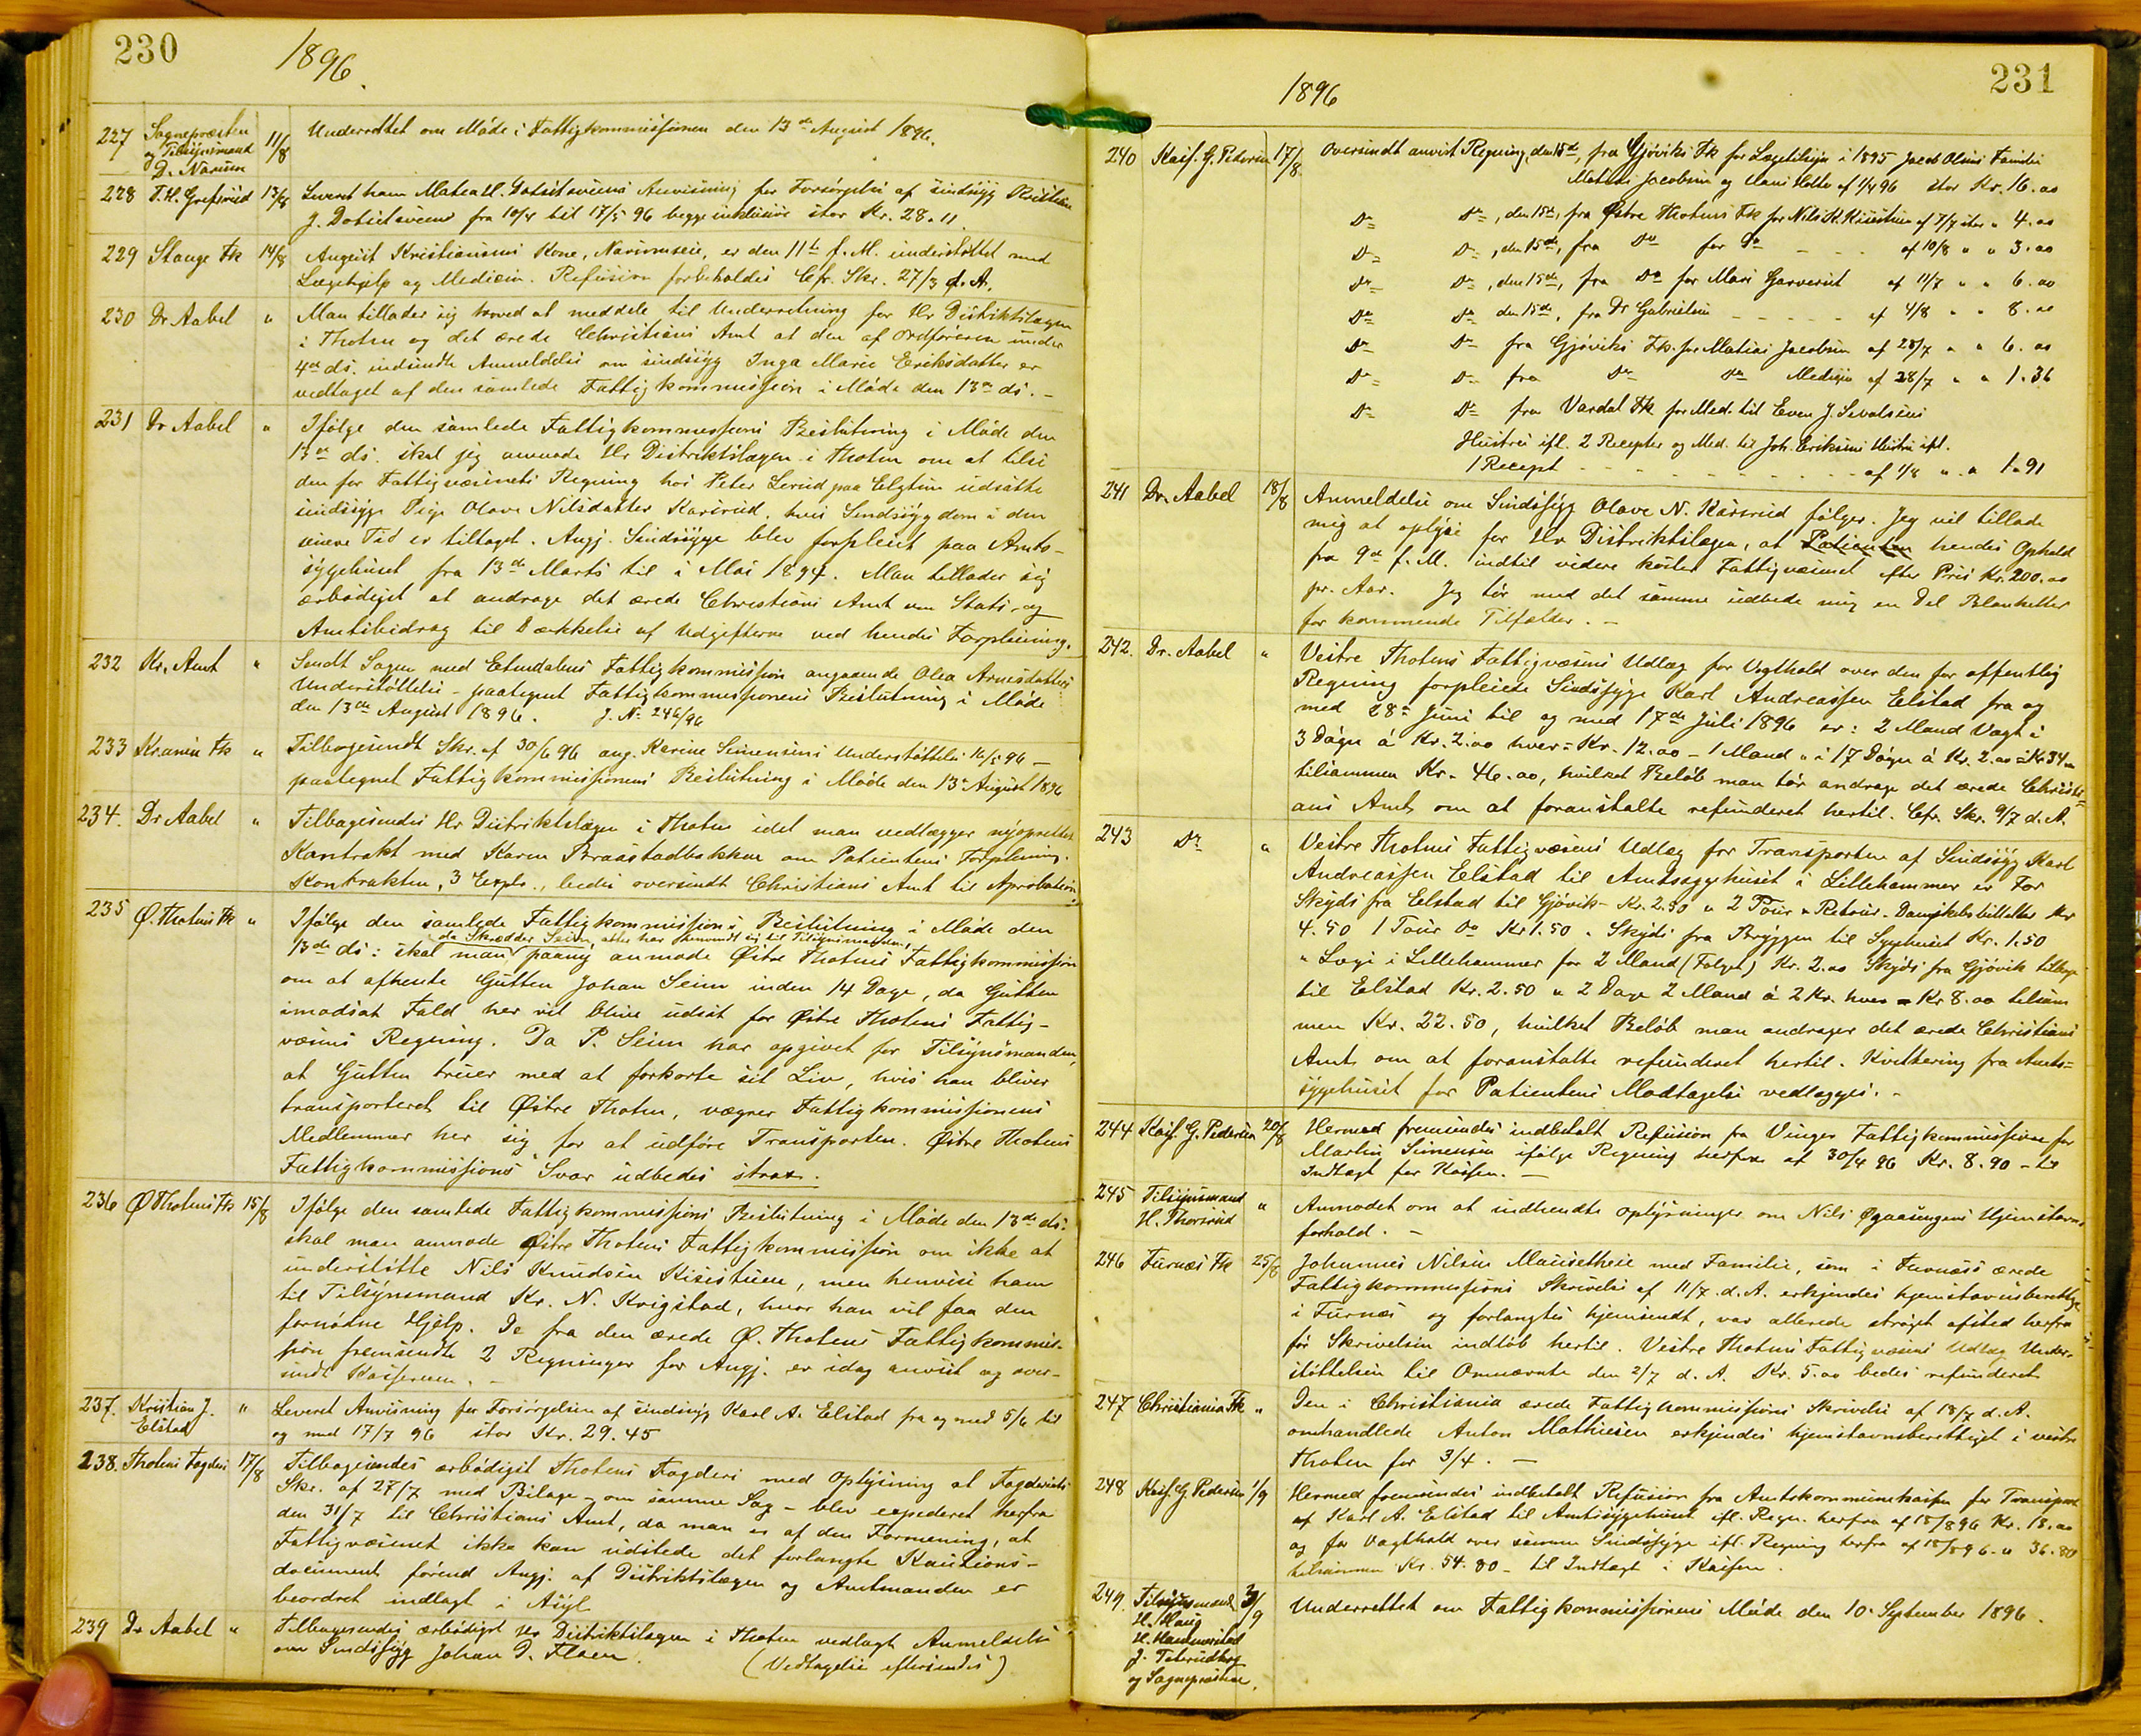 230
1896.
227 Sognepresten og Tilsynsmand D. Narum 11/8 Underrettet om Møde i Fattigkommissionen den 13de August 1896.
228 T. H. Grefsrud 13/8 Leveret ham Anvisning for Forsørgelse af sindssyg Kristian
J. fra 10/4 til 17/5 96 begge inklusive stor Kr. 28.11
229 Stange Fk 14/8 August Kristiansens Kone, Narumseie, er den 11te f. M. understøttet med
Lægehjelp og Medicin. Refusion forbeholdes Cfr. Skr. 27/3 d. A.
230 Dr Aabel " Man tillader sig herved at meddele til Underretning for Hr Distriktslægen
i Thoten og det ærede Christians Amt at den af Ordføreren under
4de ds. indsendte Anmeldelse om sindssyg Inga Marie Eriksdatter er
vedtaget af den samlede Fattigkommission i Møde den 13de ds. -
231 Dr Aabel " Ifølge den samlede Fattigkommissions Beslutning i Møde den
13de ds. skal jeg anmode Hr Distriktslægen i Thoten om at tilse
den for Fattigvæsenets Regning hos Peter Lerud paa udsatte
sindssyge Pige Olave Nilsdatter Karsrud, hvis Sindssygdom i den
senere Tid er tiltaget. Angj. Sindssyge blev forpleiet paa Amts-
sygehuset fra 13de Marts til i Mai 1894. Man tillader sig
ærbødigst at andrage det ærede Christians Amt om Stats- og
Amtsbidrag til Dækkelse af Udgifterne ved hendes Forpleining.
232 Kr. Amt " Sendt Sagen med Etnedalens Fattigkommission angaaende Olea Arnesdatters
Understøttelse - paategnet Fattigkommissionens Beslutning i Møde
den 13de August 1896. J. No 246/96
233 Fk " Tilbagesendt Skr. af 30/6 96 ang. Karine Simensens Understøttelse 16/5 96 -
paategnet Fattigkommissionens Beslutning i Møde den 13de August 1896
234. Dr Aabel " Tilbagesendes Hr Distriktslægen i Thoten idet man vedlægger nyoprettet
Kontrakt med Karen Braastadbakken om Patientens Forpleining.
Kontrakten, 3 Explr., bedes oversendt Christians Amt til Aprobation.
235 Ø. Thotens Fk " Ifølge den samlede Fattigkommissions Beslutning i Møde den
da Skrædder Seim atter har henvendt sig til Tilsynsmanden,
13de ds: skal man paany anmode Østre Thotens Fattigkommission
om at afhente Gutten Johan Seim inden 14 Dage, da Gutten
imodsat Fald her vil blive udsat for Østre Thotens Fattig-
væsens Regning. Da P. Seim har opgivet for Tilsynsmanden,
at Gutten truer med at forkorte sit Liv, hvis han bliver
transporteret til Østre Thoten, vægrer Fattigkommissionens
Medlemmer her sig for at udføre Transporten. Østre Thotens
Fattigkommissions Svar udbedes strax.
236 Ø Thotens Fk 15/8 Ifølge den samlede Fattigkommissions Beslutning i Møde den 13de ds:
skal man anmode Østre Thotens Fattigkommission om ikke at
understøtte Nils Knudsen Kisestuen, men henvise ham
til Tilsynsmand Kr. N. Krigstad, hvor han vil faa den
fornødne Hjelp. De fra den ærede Ø. Thotens Fattigkommis-
sion fremsendte 2 Regninger for Angj. er idag anvist og over-
sendt Kassereren. -
237. Kristian J. Elstad " Leveret Anvisning for Forsørgelsen af sindssyg Karl A. Elstad fra og med 5/6 til
og med 17/7 96 stor Kr. 29.45
238. Thotens Fogderi 17/8 Tilbagesendes ærbødigst Thotens Fogderi med Oplysning at Fogderiets
Skr. af 27/7 med Bilage - om samme Sag - blev expederet herfra
den 31/7 til Christians Amt, da man er af den Formening, at
Fattigvæsenet ikke kan udstede det forlangte Kautions-
document førend Angj. af Distriktslægen og Amtmanden er
beordret indlagt i Asyl
239 Dr Aabel " Tilbagesendes ærbødigst Hr Distriktslægen i Thoten vedlagt Anmeldelse
om Sindssyg Johan D. Floen. (Vedtagelse eftersendes)
231
1896
240 Kass. G. Pedersen 17/8. Oversendt anvist Regning, den 15de, fra Gjøviks Fk for Lægetilsyn i 1895 Jacob Olsens Familie
Mathias Jacobsen og af 1/4 96 stor Kr. 16.00
Do Do, den 15de, fra Østre Thotens Fk for Nils K. Kisestuen af 7/7 stor " 4.00
Do Do, den 15de, fra Do for Do - - - af 10/8 " " 3.00
Do Do, den 15de, fra Do for Mari Garverset af 11/7 " " 6.00
Do Do den 15de, fra Dr Gabrielsen - - - - - af 4/8 " " 8.00
Do Do fra Gjøviks Fk. for Mathias Jacobsen af 28/7 " " 6.00
Do Do fra Do Do Medisin af 28/7 " " 1.36
Do Do fra Vardal Fk for Med. til Even J. Sevalsens
Hustru ifl. 2 Recepter og Med. til Joh. Eriksens Hustru ifl.
1 Recept - - - - - - - - af 1/8 " " 1.91
241 Dr. Aabel 18/8 Anmeldelse om Sindssyg Olave N. Karsrud følger. Jeg vil tillade
mig at oplyse for Hr Distriktslægen, at Patienten hendes Ophold
fra 9de f. M. indtil videre koster Fattigvæsenet efter Pris Kr. 200.00
pr. Aar. Jeg tør med det samme udbede mig en Del Blanketter
for kommende Tilfælder. -
242. Dr. Aabel " Vestre Thotens Fattigvæsens Udlæg for Vagthold over den for offentlig
Regning forpleiede Sindssyge Karl Andreassen Elstad fra og
med 28de Juni til og med 17de Juli 1896 er: 2 Mand Vagt i
3 Døgn á Kr. 2.00 hver = Kr. 12.00 - 1 Mand " i 17 Døgn á Kr. 2.00 = Kr 34.00
tilsammen Kr. 46.00, hvilket Beløb man tør andrage det ærede Christi-
ans Amt om at foranstalte refunderet hertil. Cfr. Skr. 9/7 d. A.
243 Do " Vestre Thotens Fattigvæsens Udlæg for Transporten af Sindssyg Karl
Andreassen Elstad til Amtssygehuset i Lillehammer er For
Skyds fra Elstad til Gjøvik - Kr. 2.50 " 2 Tour & Retour. Dampskibsbilletter Kr
4.50 1 Tour Do Kr 1.50. Skyds fra Bryggen til Sygehuset Kr. 1.50
" Logi i Lillehammer for 2 Mand (Følget) Kr. 2.00 Skyds fra Gjøvik tilbage
til Elstad Kr. 2.50 " 2 Dage 2 Mand á 2 Kr. hver = Kr 8.00 tilsam
men Kr. 22.50, hvilket Beløb man andrager det ærede Christians
Amt om at foranstalte refunderet hertil. Kvittering fra Amts-
sygehuset for Patientens Modtagelse vedlægges. -
244 Kass. G. Pedersen 20/8 Hermed fremsendes indbetalt Refusion fra Vinger Fattigkommission for
Martin Simensen ifølge Regning herfra af 30/4 96 Kr. 8.90 - til
Indtægt for Kassen. -
245 Tilsynsmand H. Thorsrud " Anmodet om at indhendte Oplysninger om Nils Hjemstavns-
forhold. -
246 Furnæs Fk 25/8 Johannes Nilsen med Familie, som i Furnæss ærede
Fattigkommissions Skrivelse af 11/7 d. A. erkjendes hjemstavnsberettiget
i Furnæs og forlangtes hjemsendt, var allerede strøget afsted herfra
før Skrivelsen indløb hertil. Vestre Thotens Fattigvæsens Udlæg Under-
støttelsen til Omnævnte den 2/7 d. A. Kr. 5.00 bedes refunderet
247 Christiania Fk " Den i Christiania ærede Fattigkommissions Skrivelse af 18/7 d. A.
omhandlede Anton Mathiesen erkjendes hjemstavnsberettiget i vestre
Thoten for 3/4. -
248 Kass. G. Pedersen 1/9 Hermed fremsendes indbetalt Refusion fra Amtskommunekassen for Transport
af Karl A. Elstad til Amtssygehuset ifl. Regn. herfra af 18/8 96 Kr. 18.00
og for Vagthold over samme Sindssyge ifl. Regning herfra af 18/8 96 " 36.80
tilsammen Kr. 54.80 - til Indtægt i Kassen.
249. Tilsynsmænd 3/9 Underrettet om Fattigkommissionens Møde den 10. September 1896.
H. Haug
H. Hammerstad
J. Teterudberg
og Sognepresten.